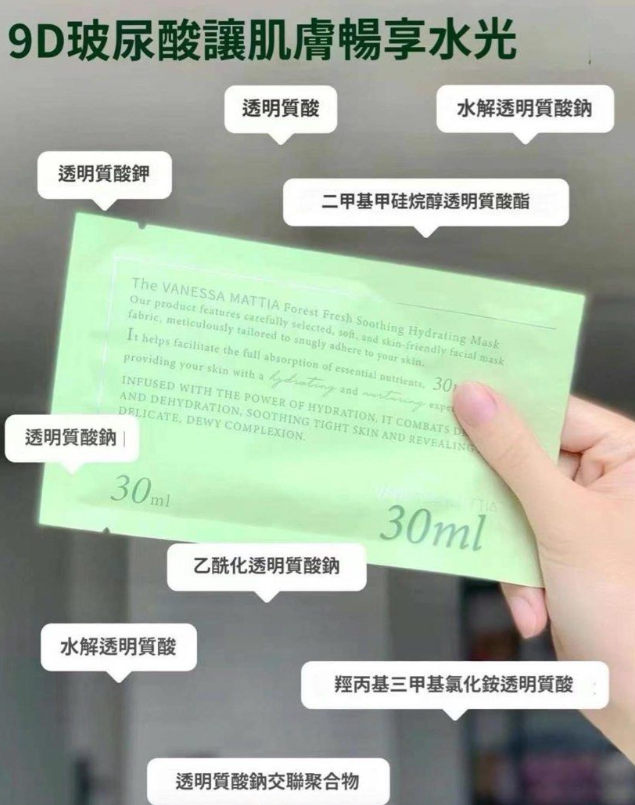 9D玻尿酸讓肌膚暢享水光
透明質酸
水解透明質酸鈉
透明質酸鉀
二甲基甲硅烷醇透明質酸酯
The VANESSA MATTIA Forest Fresh Soothing Hydrating Mask
Our product features carefully selected, soft, and skin-friendly facial mask
fabric, meticulously tailored to snugly adhere to your skin.
It helps facilitate the full absorption of essential nutrients,
providing your skin with a hydrating and nurturing
INFUSED WITH THE POWER OF HYDRATION, IT COMBATS
AND DEHYDRATION, SOOTHING TIGHT SKIN AND REVEALING
DELICATE, DEWY COMPLEXION.
透明質酸鈉
30ml
30ml
乙酰化透明質酸鈉
水解透明質酸
羥丙基三甲基氯化銨透明質酸
透明質酸鈉交聯聚合物